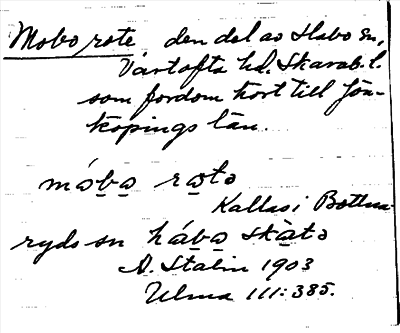 Moborote, den del av Habo sn,
Vartofta hd, Skarab. l.
som fordom hört till Jön-
köpings län.
móbo rotə
Kallas i Bottna-
ryds sn hábo skàtə
A. Stalin 1903
Ulma 111:385.